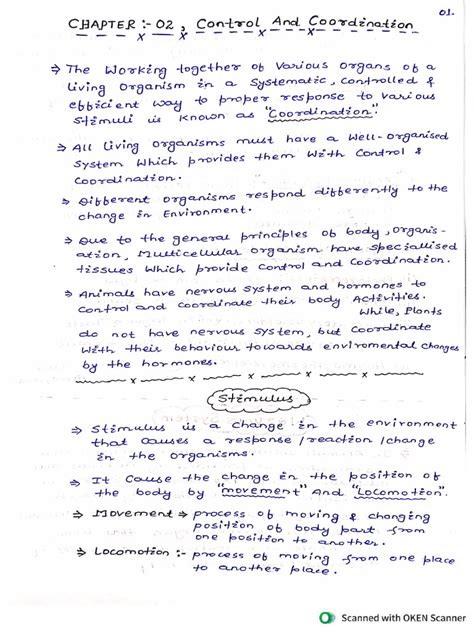 01.
CHAPTER :- 02, Control And Coordination
⇒ The Working together of Various Organs of a
Living Organism in a Systematic, Controlled &
efficient way to proper response to various
Stimuli is known as "Coordination".
⇒ All Living Organisms must have a Well-Organised
System Which provides them With Control &
Coordination.
⇒ Different Organisms respond differently to the
change in Environment.
⇒ Due to the general principles of body, Organis-
ation, Multicellular organism have specialised
tissues Which provide Control and Coordination.
⇒ Animals have nervous System and hormones to
Control and Coordinate their body Activities.
While, Plants
do not have nervous System, but Coordinate
With their behaviour towards enviromental changes
by the hormones.
Stimulus
⇒ Stimulus is a change in the environment
that causes a response / reaction / change
in the organisms.
⇒ It Cause the change in the position of
the body by "movement" And "Locomotion".
⇒ Movement ⇒ process of moving & changing
position of body part from
one position to another.
⇒ Locomotion :- process of moving from one place
to another place.
Scanned with OKEN Scanner